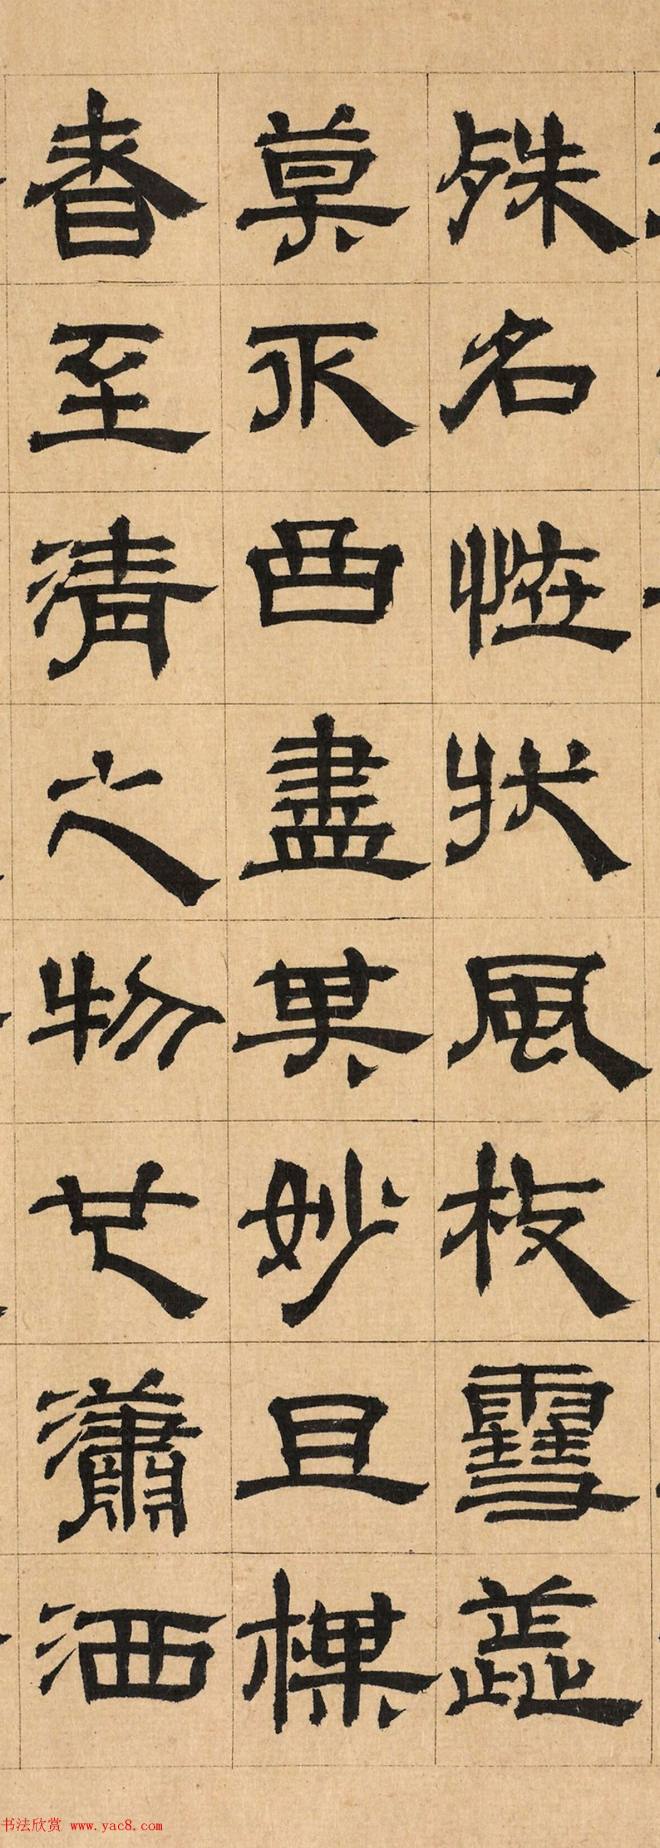 殊名恠状風枝雪蕋
莫不曲盡其妙且楳
者至清之物瀟洒
书法欣赏 www.yac8.com